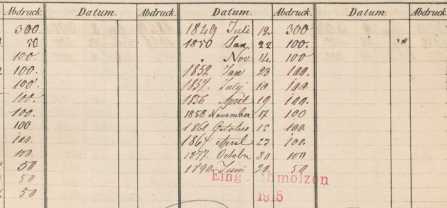 Abdruck. Datum. Abdruck. Datum. Abdruck. Datum. Abdruck.
300 1849 Juli 12. 300
50 1850 Jan. 22 100.
100 " Nov. 14. 100
100. 1852 Jan 23 100.
100. 1857 July 19 100
100. 1856 April 19 100.
100. 1858 November 17 100
100 1861 October 15 100.
100. 1867 April 27 100.
100 1877 October 30 100
50 1890 Juni 20 50
50 Eing
50 1915